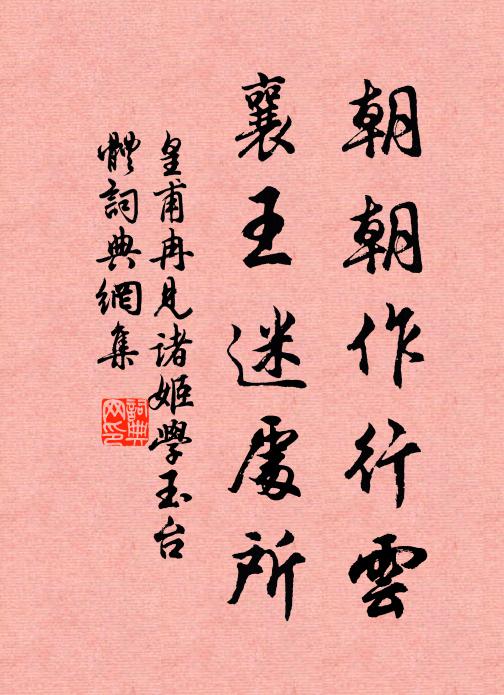 朝朝作行雲
襄王迷處所
皇甫冉見诸姬學玉台
體詞典網集
詞典网印